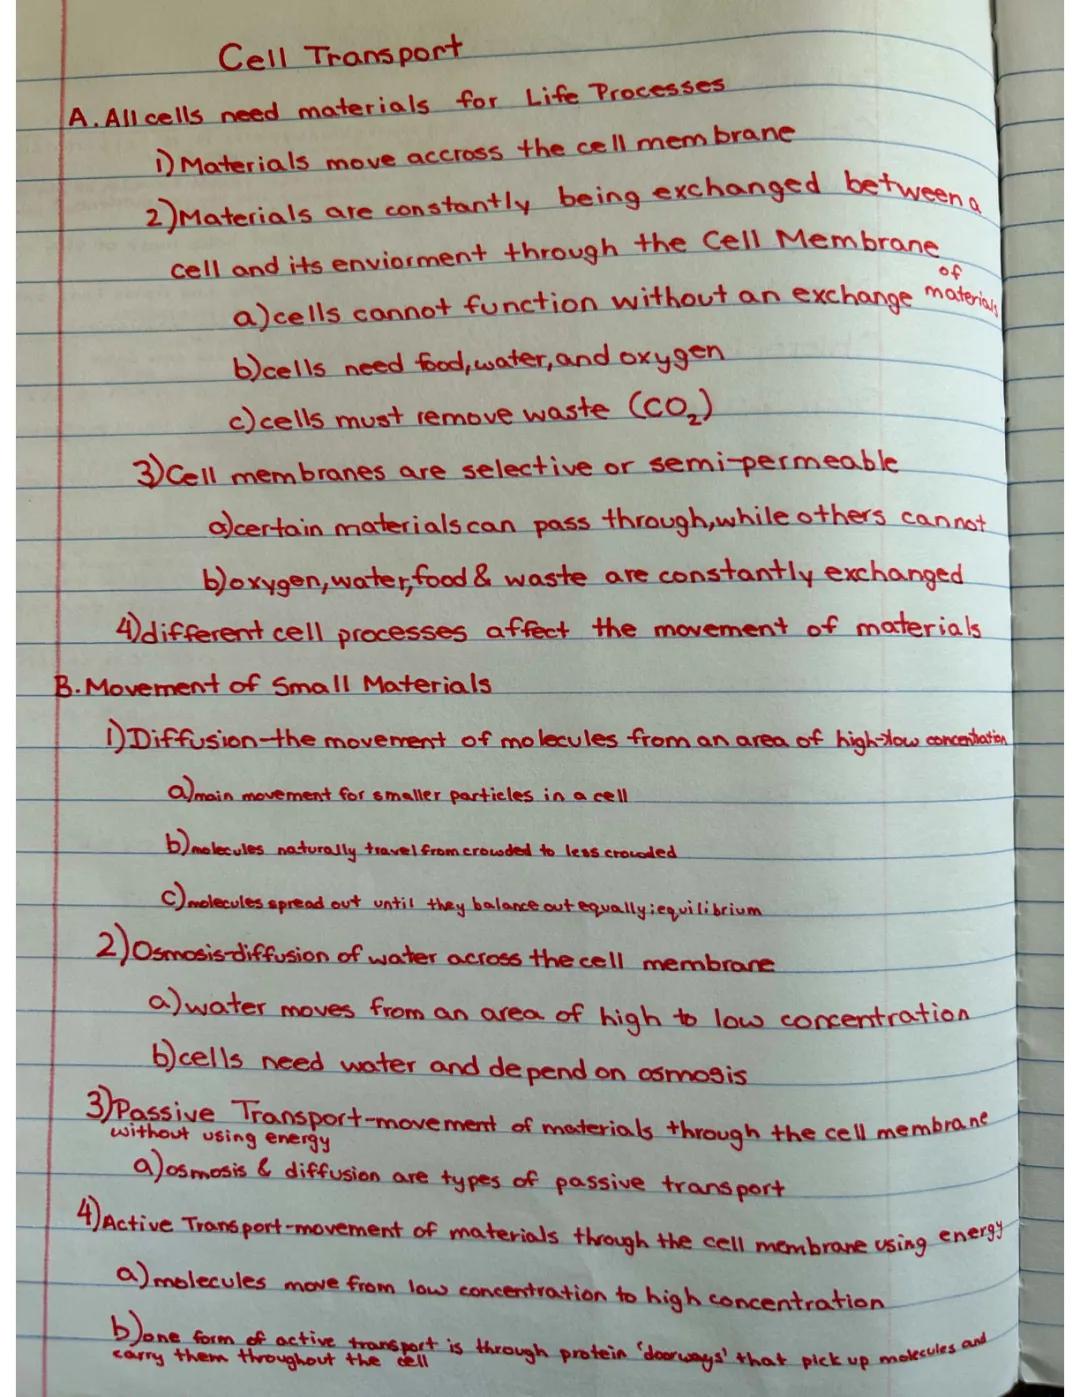 Cell Transport
A. All cells need materials for Life Processes
1) Materials move accross the cell membrane
2) Materials are constantly being exchanged between a
cell and its enviorment through the Cell Membrane
a) cells cannot function without an exchange of materials
b) cells need food, water, and oxygen
c) cells must remove waste (CO₂)
3) Cell membranes are selective or semi-permeable
a) certain materials can pass through, while others cannot
b) oxygen, water, food & waste are constantly exchanged
4) different cell processes affect the movement of materials
B. Movement of Small Materials
1) Diffusion-the movement of molecules from an area of high→low concentration
a) main movement for smaller particles in a cell
b) molecules naturally travel from crowded to less crowded
c) molecules spread out until they balance out equally: equilibrium
2) Osmosis-diffusion of water across the cell membrane
a) water moves from an area of high to low concentration
b) cells need water and depend on osmosis
3) Passive Transport-movement of materials through the cell membrane
without using energy
a) osmosis & diffusion are types of passive transport
4) Active Transport-movement of materials through the cell membrane using energy
a) molecules move from low concentration to high concentration
b) one form of active transport is through protein 'doorways' that pick up molecules and
carry them throughout the cell